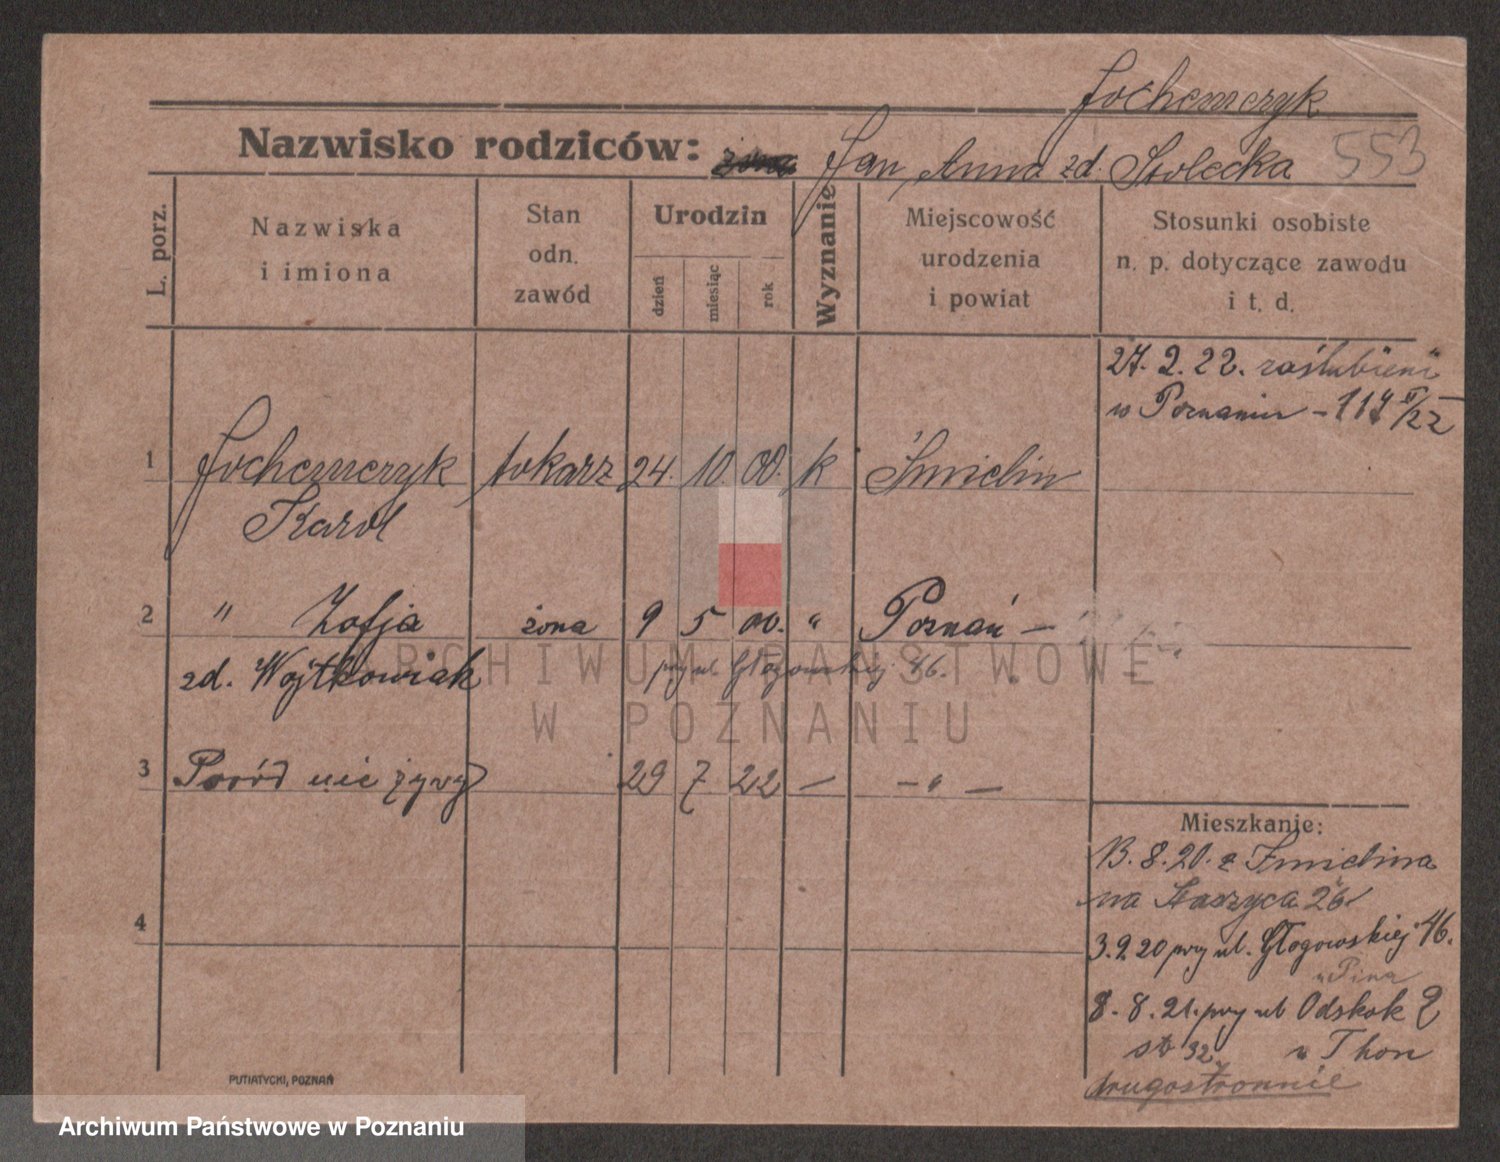 Jochemczyk
Nazwisko rodziców: Jan, Anna zd. Stolecka 553
L. porz.
Nazwiska i imiona
Stan odn. zawód
Urodzin
dzień
miesiąc
rok
Wyznanie
Miejscowość urodzenia i powiat
Stosunki osobiste n. p. dotyczące zawodu i t. d.
27. 2. 22. zaślubieni
w Poznaniu - 117 II/22
1 Jochemczyk tokarz 24. 10. 00. k Imielin
Karol
2 " Zofja żona 9 5 00. " Poznań -
zd. Wojtkowiak przy ul. Głogowskiej 86.
ARCHIWUM PAŃSTWOWE
W POZNANIU
3 Poród nie żywy 29 7 22 — - " -
Mieszkanie:
13. 8. 20. z Imielina
na Staszyca 26
3. 9. 20 przy ul. Głogowskiej 46.
u Pina
8. 8. 21. przy ul. Odskok 2
st 32. u Thon
drugostronnie
4
PUTIATYCKI, POZNAŃ
Archiwum Państwowe w Poznaniu